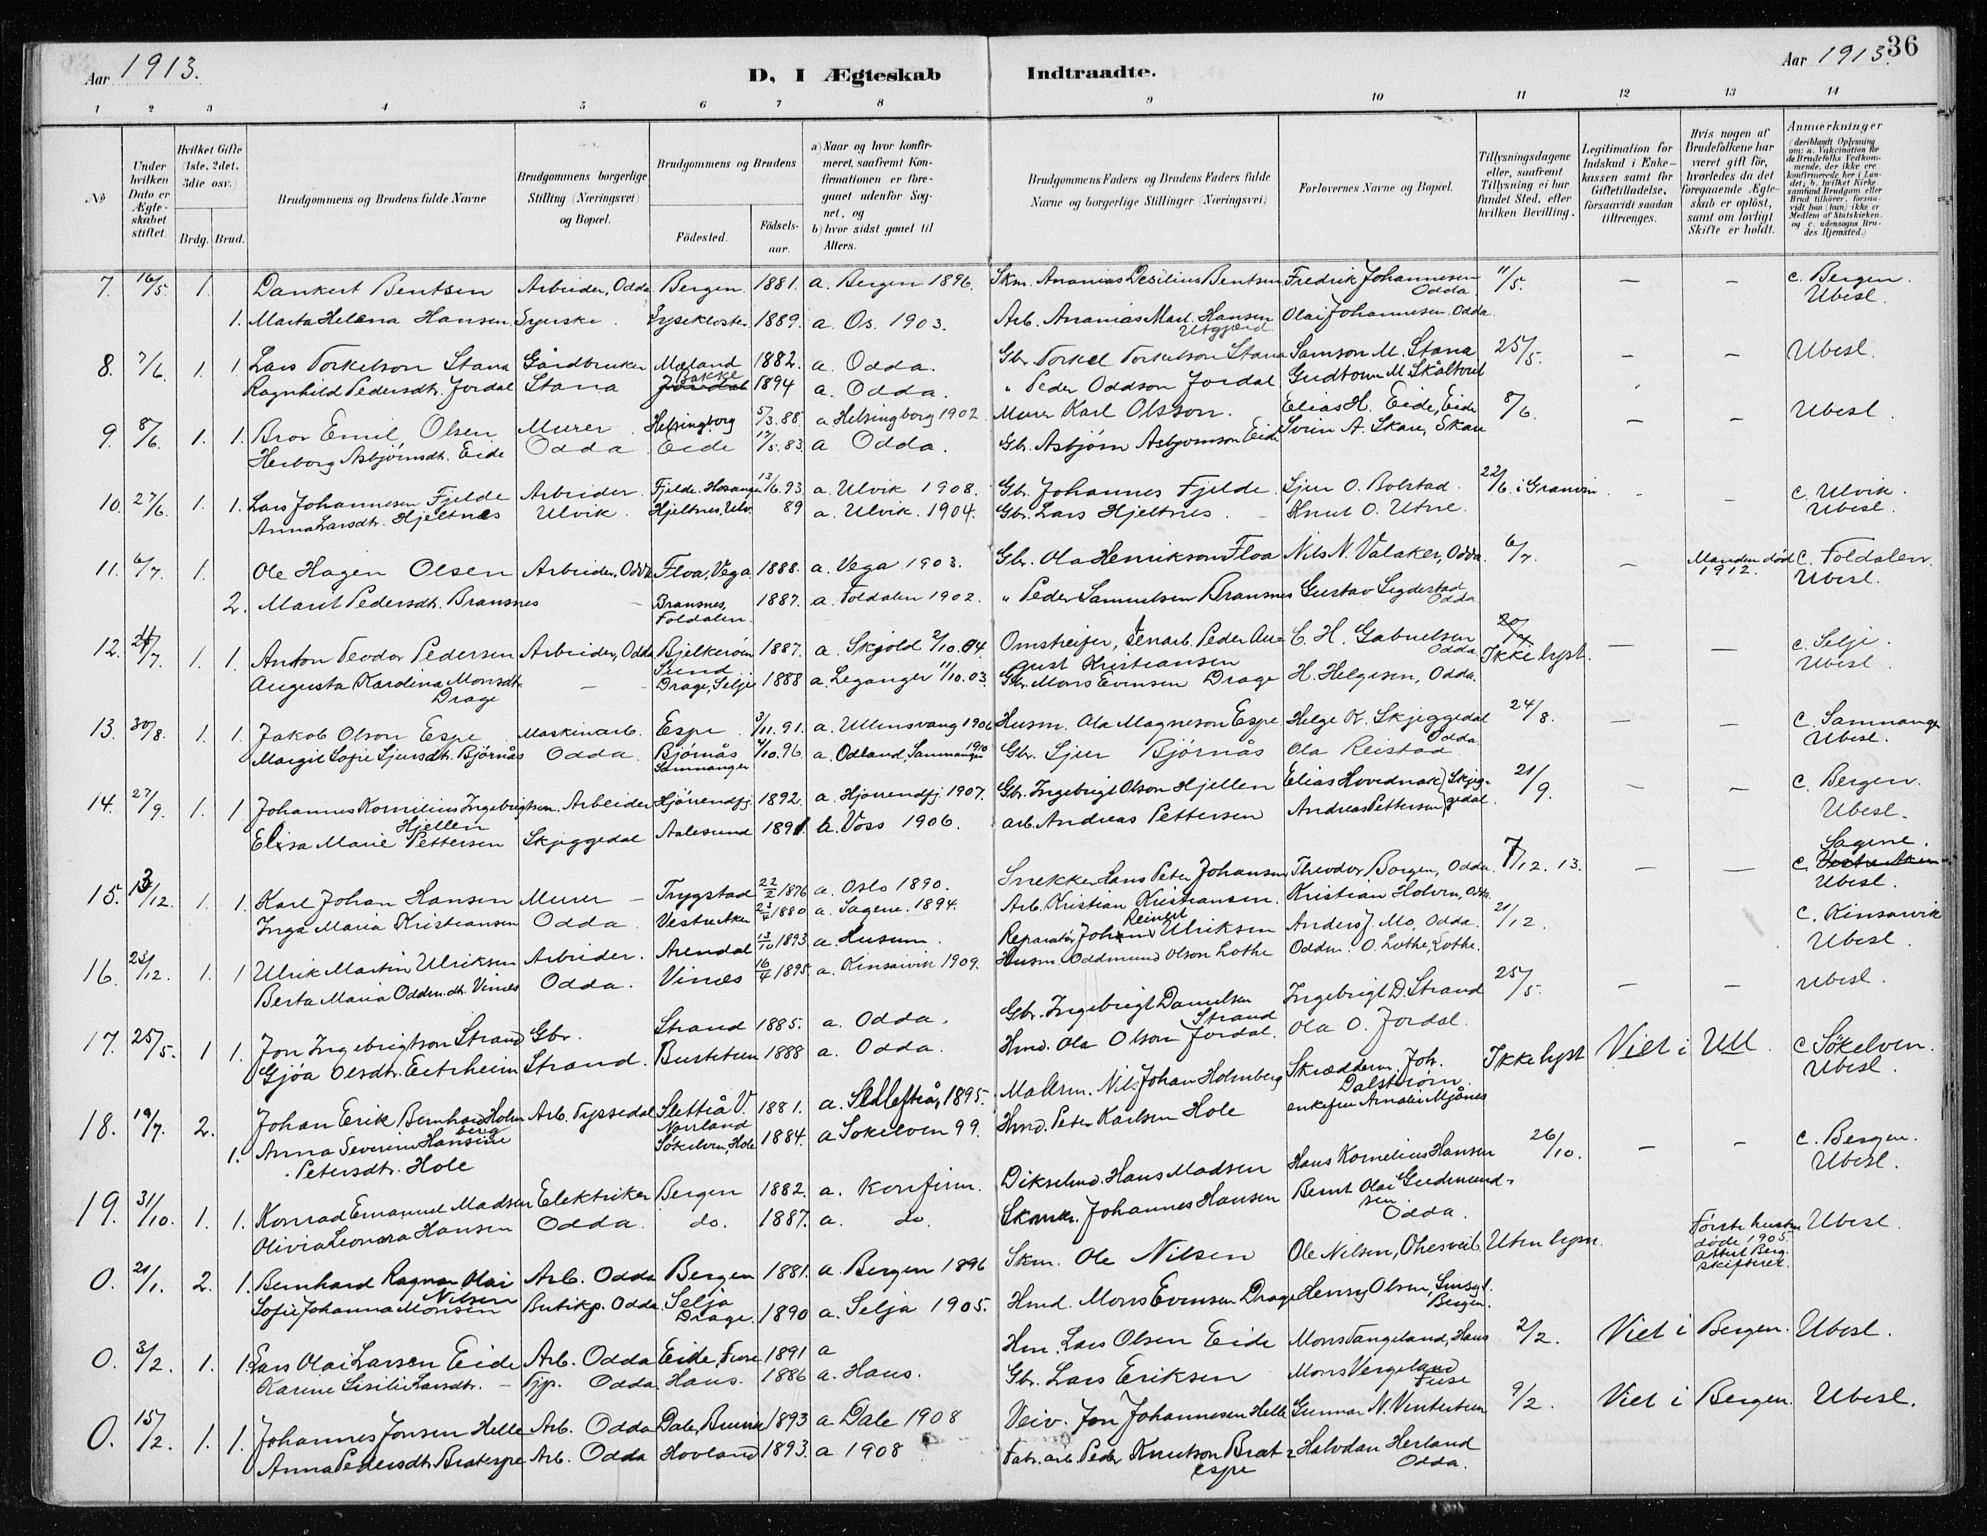 Aar 1913.
D, I Ægteskab
Indtraadte.
Aar 1913.
36
1 2 3 4 5 6 7 8 9 10 11 12 13 14
No
Under hvilken Dato er Ægteskabet stiftet.
Hvilket Gifte (1ste, 2det, 3die osv.)
Brdg. Brud.
Brudgommens og Brudens fulde Navne
Brudgommens borgerlige Stilling (Næringsvei) og Bopæl.
Brudgommens og Brudens
Fødested.
Fødselsaar.
a) Naar og hvor konfirmeret, saafremt Konfirmationen er foregaaet udenfor Sognet, og
b) hvor sidst gaaet til Alters.
Brudgommens Faders og Brudens Faders fulde Navne og borgerlige Stillinger (Næringsvei)
Forlovernes Navne og Bopæl.
Tillysningsdagene eller, saafremt Tillysning ei har fundet Sted, efter hvilken Bevilling.
Legitimation for Indskud i Enkekassen samt for Giftetilladelse, forsaavidt saadan tiltrænges.
Hvis nogen af Brudefolkene har været gift før, hvorledes da det foregaaende Ægteskab er opløst, samt om lovligt Skifte er holdt.
Anmærkninger
(deriblandt Oplysning om: a. Vakcination for de Brudefolks Vedkommende, der ikke ere konfirmerede her i Landet; b. hvilket Kirkesamfund Brudgom eller Brud tilhører, forsaavidt han (hun) ikke er Medlem af Statskirken, og c. udensogns Brudes Hjemsted.)
7. 16/5 1. Dankert Bentsen Arbeider, Odda Bergen 1881. a. Bergen 1896. Skm. Ananias Desilius Bentsen Fredrik Johannesen Odda 11/5. — — c. Bergen. Ubesl.
1. Marta Helena Hansen Syerske. Lysekloster 1889. a. Os. 1903. Arb. Ananias Mart. Hansen Utgjærd Olai Johannesen Odda
8. 7/6 1. 1 Lars Torkelson Stana Gårdbruker Mæland 1882. a. Odda. Gbr. Torkel Torkelson Stana Samson M. Stana 25/5. — — Ubesl.
Ragnhild Pedersdtr. Jordal Stana Bakke 1894 a. Odda. " Peder Oddson Jordal Gudtorm M. Skåltveit
9. 8/6 1. 1. Bror Emil Olsen Murer Helsingborg 5/3.88. a Helsingborg 1902. Murer Karl Olsson. Elias H. Eide, Eide 8/6. — — Ubesl.
Herborg Asbjørnsdt. Eide Odda Eide 17/5.83. a Odda. Gbr. Asbjørn Asbjørnson Eide Svein A. Skare, Skare
10. 27/6 1. 1. Lars Johannesen Fjelde Arbeider Fjelde, Hosanger 13/6.93 a. Ulvik 1908. Gbr. Johannes Fjelde Sjur O. Bolstad. 22/6. i Granvin — — c. Ulvik.
Anna Larsdtr. Hjeltnes Ulvik. Hjeltnes, Ulv. 89 a. Ulvik. 1904. Gbr. Lars Hjeltnes. Knut O. Utne. Ubesl.
11. 6/7 1. Ole Hagen Olsen Arbeider, Odda Floa, Vega 1888. a. Vega 1903. Gbr. Ola Henrikson Floa Nils N. Valaker, Odda. 6/7. — Manden død 1912. c. Foldalen. Ubesl.
2. Marit Pedersdt. Bransnes — Bransnes, Foldalen 1887. a. Foldalen 1902. " Peder Samuelsen Bransnes Gustav Sigdestad Odda
12. 1. 1. Anton Teodor Pedersen Arbeider, Odda Bjelkerøen Sund 1887. a. Skjold 2/10.04. Omstreifer, Jernarb. Peder August Kristiansen C. H. Gabrielsen Odda 20/7 Ikke lyst. — — c. Selje. Ubesl.
Augusta Karolina Monsdt. Drage — Drage, Selje 1888 a. Leganger 11/10.03. Gbr. Mons Evensen Drage H. Helgesen, Odda.
13. 30/8 1. 1. Jakob Olson Espe Maskinarb. Espe 3/11.91. a. Ullensvang 1906 Husm. Ola Magneson Espe Helge K. Skjeggedal Odda 24/8. — — c. Samnanger Ubesl.
Margit Sofie Sjursdt. Bjørnås Odda Bjørnås Samnanger 4/10.96 a. Odland, Samnanger 1910 Gbr. Sjur Bjørnås Ola Reistad.
14. 27/9. 1. 1 Johannes Kornilius Ingebrigtson Hjellen Arbeider Hjørrendfj. 1892. a. Hjørrendfj. 1907. Gbr. Ingebrigt Olson Hjellen Elias Hovednak Skjeggedal 21/9. — — c. Bergen. Ubesl.
Elisa Marie Pettersen Skjeggedal Aalesund 1891 b. Voss 1906. arb. Andreas Pettersen Andreas Pettersen
15. 13/12. 1. 1. Karl Johan Hansen Murer — Trygstad 22/2 1876 a. Oslo 1890. Snekker Hans Peter Johansen Theodor Borgen, Odda. 7/12. 13. — — c. Sagene. Ubesl.
Inga Maria Kristiansen Odda Vestre Aker 23/4 1880 a. Sagene. 1894. Arb. Kristian Kristiansen. Kristian Holven, Odda.
16. 23/12. 1. 1 Ulrik Martin Ulriksen Arbeider. Arendal 13/10 1893 a. Husum. Reparatør Reinert Ulriksen Anders J. Mo, Odda. 21/12. c. Kinsarvik Ubesl.
Berta Maria Oddm.dt. Vines Odda. Vines 16/4 1895 a. Kinsarvik 1909. Husm. Oddmund Olson Lothe Oddm. O. Lothe, Lothe.
17. 25/5. 1 1. Jon Ingebrigtson Strand Gbr. Strand 1885. a. Odda. Gbr. Ingebrigt Danielsen Strand Ingebrigt D. Strand 25/5. — — Ubesl.
Gjøa Olsdtr. Eitrheim Strand. Bustetun 1888 a. Odda. Hmd. Ola Olson Jordal. Ola O. Jordal.
18. 19/7. 2. Johan Erik Bernhard Holmberg Arb. Tyssedal Skellefteå V. Norrland 1881. a. Skellefteå, 1895. Malerm. Nils Johan Holmberg Skrædderm. Joh. Dalstrøm Ikke lyst Viet i Ull. c Søkelven. Ubesl.
1. Anna Severine Hansine Petersdtr. Hole Søkelven, Hole 1884. a Søkelven 99. Hmd. Peter Karlsen Hole enkefru Amalie Mjånes
19. 31/10. 1. 1. Konrad Emanuel Madsen Elektriker Bergen 1882. a. Konfirm. Dikselmd. Hans Madsen Hans Kornelius Hansen 26/10. — — c. Bergen. Ubesl.
Olivia Leonora Hansen Odda do. 1887. a. do. Skomkr. Johannes Hansen Bernt Olai Gudmundsen Odda.
0. 21/1. 2. 1. Bernhard Ragnar Olai Nilsen Arb. Odda Bergen 1881. a. Bergen 1896 Skm. Ole Nilsen Ole Nilsen, Uten lysn. Første hustru døde 1905. Attest Berg. skifteret. Ubesl.
Sofie Johanna Monsen Butikp. Odda Selja Drage. 1890 a. Selja 1905. Hmd. Mons Evensen Drage Henry Olsen, Bergen.
0. 3/2. 1. 1. Lars Olai Larsen Eide Arb. Odda Eide, Fuse 1891 a Hm. Lars Olsen Eide Mons Tangeland, Haus 2/2. Viet i Bergen. Ubesl.
Karine Sisilie Larsdtr. — Tjp. Odda Haus. 1886 a. Haus. Gbr. Lars Eriksen Mons Vergeland Fuse
0. 15/2. 1. 1. Johannes Jonsen Helle Arb. Odda Dale, Bruvik 1893 a Dale 1908 Veiv. Jon Johannesen Helle Gunnar N. Vintertun 9/2. Viet i Bergen. Ubesl.
Anna Pedersdtr. Bratespe Arb. Odda Hovland 1893. a 1908 Fabr. arb. Peder Knutson Bratespe Halvdan Herland Odda.